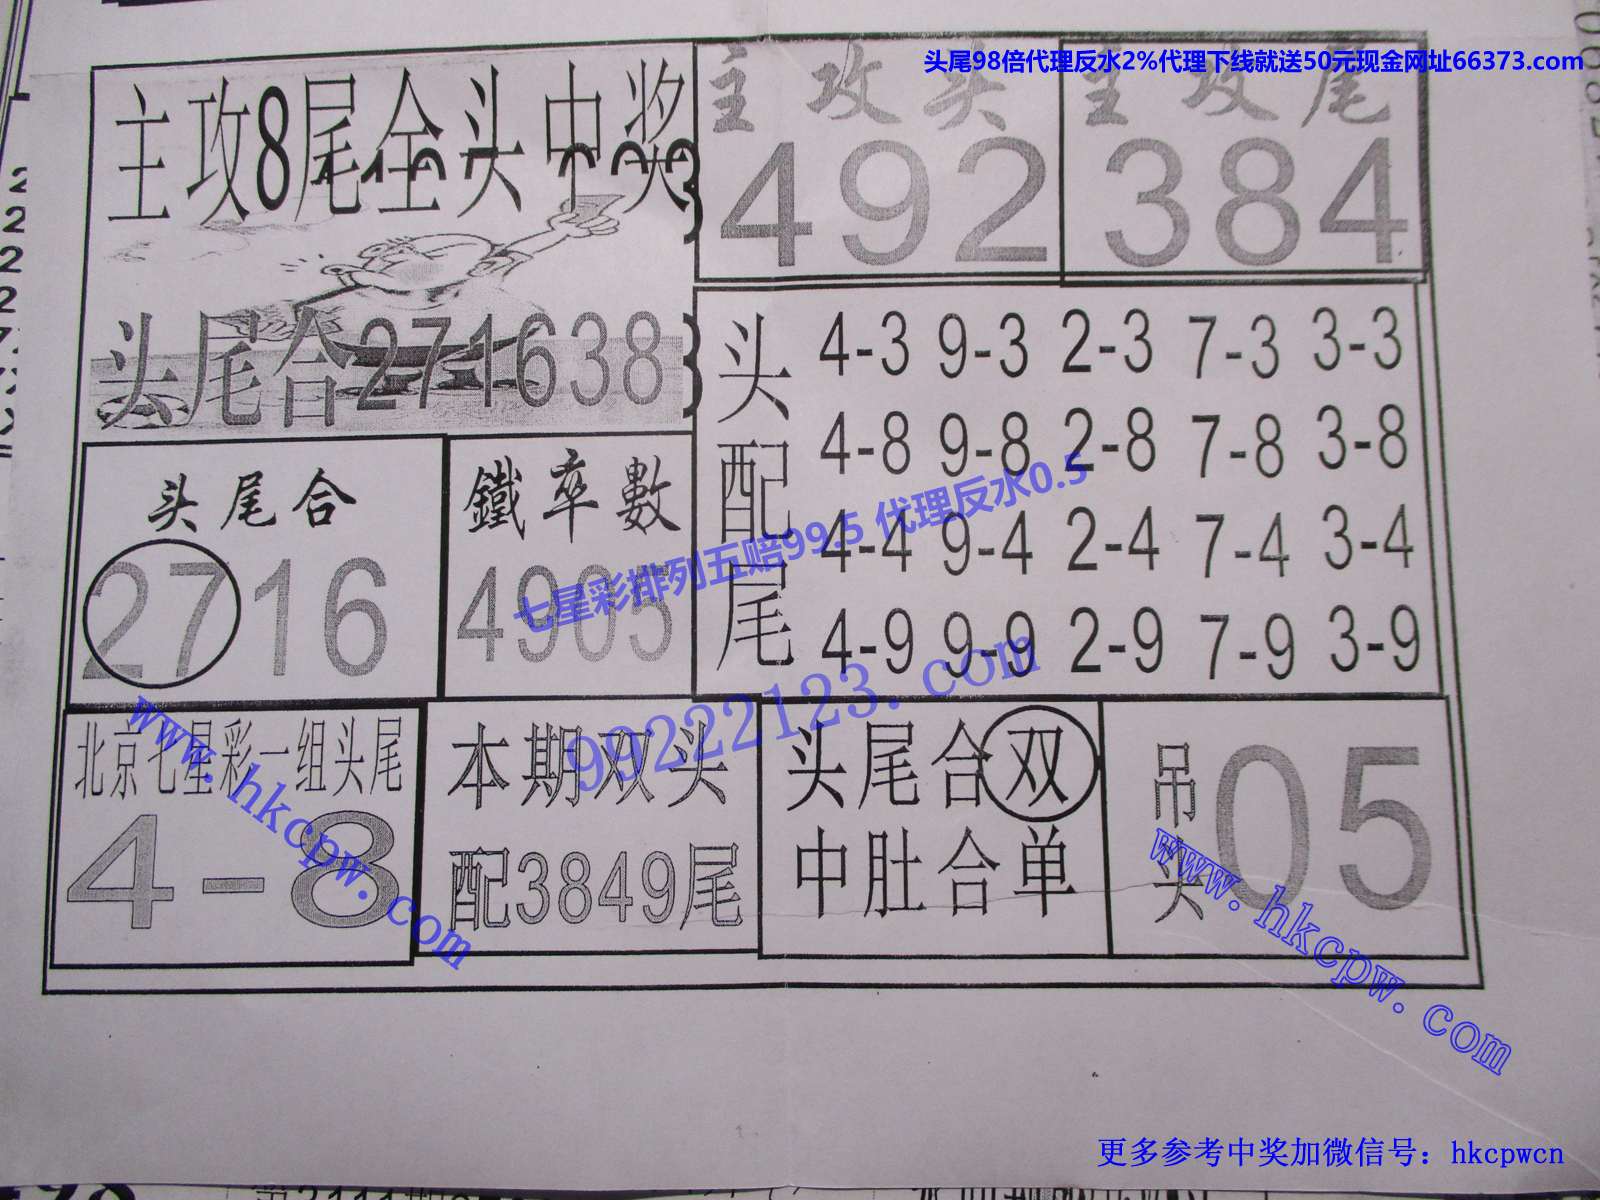 头尾98倍代理反水2%代理下线就送50元现金网址66373.com
主攻8尾全头中奖
头尾合271638
主攻头
492
主攻尾
384
头尾合
2716
鐵卒數
4905
头配尾
4-3 9-3 2-3 7-3 3-3
4-8 9-8 2-8 7-8 3-8
4-4 9-4 2-4 7-4 3-4
4-9 9-9 2-9 7-9 3-9
七星彩排列五赔99.5 代理反水0.5
99222123.com
北京七星彩一组头尾
4-8
本期双头
配3849尾
头尾合双
中肚合单
吊头
05
www.hkcpw.com
www.hkcpw.com
更多参考中奖加微信号：hkcpwcn